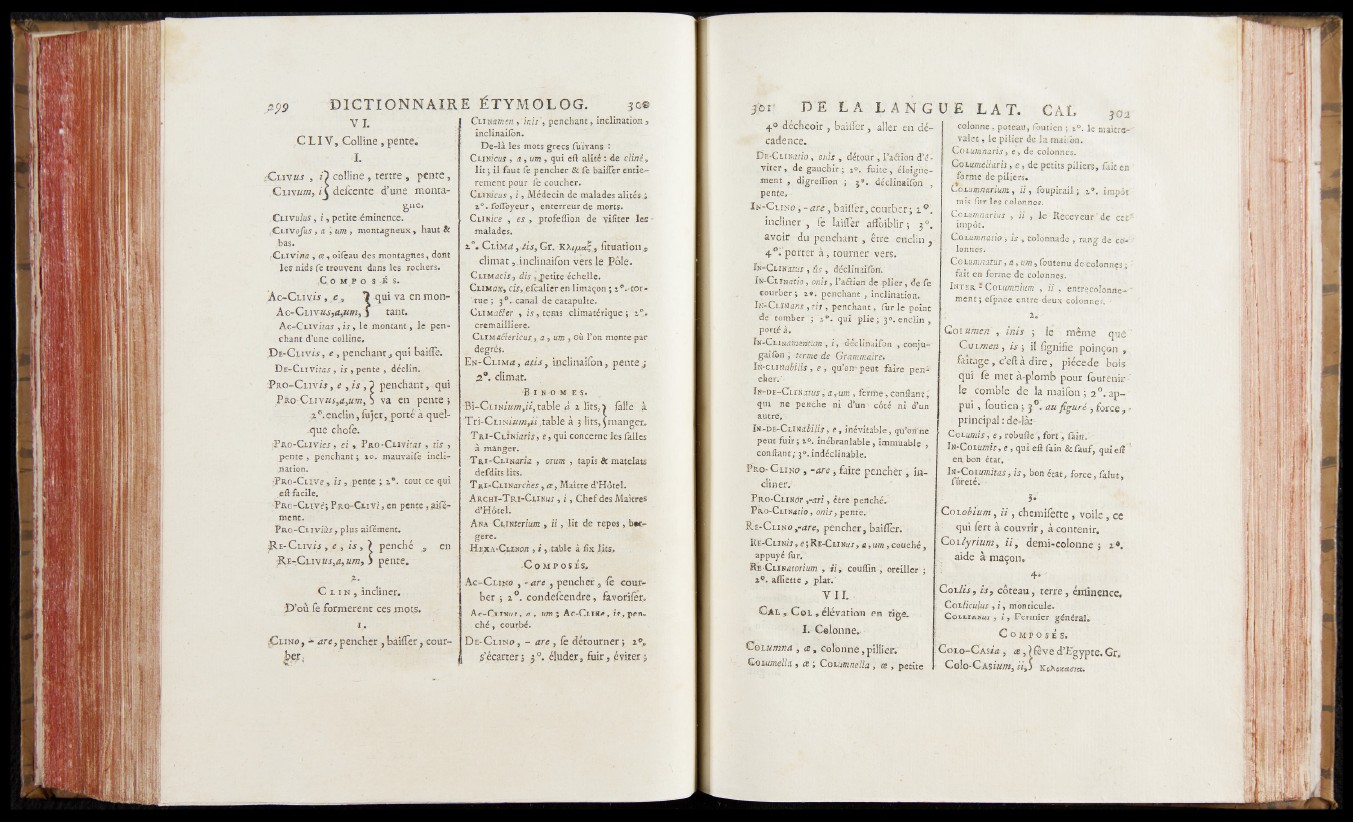 299 DICTIONNAIRE ÉTYMOLOG. 300
VI.
CLIV, Colline, pente.
I.
CLIVus, i } colline, tertre, pente,
CLIVum, i } deſcente d'une monta-
gne.
CLIVulus, i, petite éminence.
CLIVoſus, a, um, montagneux, haut &
bas.
CLIVina, æ, oiſeau des montagnes, dont
les nids ſe trouvent dans les rochers.
COMPOSÉS.
AC-CLIVis, e, } qui va en mon-
AC-CLIVus,a,um, } tant.
AC-CLIVitas, is, le montant, le pen-
chant d'une colline.
DE-CLIVis, e, penchant, qui baiſſe.
DE-CLIVitas, is, pente, déclin.
PRO-CLIVis, e, is, } penchant, qui
PRO-CLIVus,a,um, } va en pente;
2°. enclin, ſujet, porté a quel-
que choſe.
PRO-CLIVies, ei, PRO-CLIVitas, tis,
pente, penchant; 2o. mauvaiſe incli-
nation.
PRO-CLIVe, is, pente; 2°. tout ce qui
eſt facile.
PRO-CLIVé; PRO-CLIVi, en pente, aiſé-
ment.
PRO-CLIViùs, plus aiſément.
RE-CLIVis, e, is, } penché, en
RE-CLIVus,a,um, } pente.
2.
CLIN, incliner.
D'où ſe formerent ces mots.
1.
CLINo, - are, pencher, baiſſer, cour-
ber.
CLINamen, inis, penchant, inclination,
inclinaiſon.
De-là les mots grecs ſuivans :
CLINicus, a, um, qui eſt alité : de cliné,
lit; il faut ſe pencher & ſe baiſſer entie-
rement pour ſe coucher.
CLINicus, i, Médecin de malades alités;
2°. foſſoyeur, enterreur de morts.
CLINice, es, profeſſion de viſiter les
malades.
2°. CLIMa, tis, Gr. Κλιμαξ, ſituation,
climat, inclinaiſon vers le Pôle.
CLIMacis, dis, petite échelle.
CLIMax, cis, eſcalier en limaçon; 2°. tor-
tue; 3°. canal de catapulte.
CLIMacter, is, tems climatérique; 2°.
cremailliere.
CLIMactericus, a, um, où l'on monte par
degrés.
EN-CLIMa, atis, inclinaiſon, pente;
2°. climat.
BINOMES.
BI-CLINium,ii, table à 2 lits, } ſalle à
TRI-CLINium,ii table à 3 lits, } manger.
TRI-CLINiaris, e, qui concerne les ſalles
à manger.
TRI-CLINaria, orum, tapis & matelats
deſdits lits.
TRI-CLINarches, æ, Maitre d'Hôtel.
ARCHI-TRI-CLINus, i, Chef des Maitres
d'Hôtel.
ANA CLINterium, ii, lit de repos, ber-
gere.
HEXA-CLINon, i, table à ſix lits.
COMPOSÉS.
AC-CLINo, - are, pencher, ſe cour-
ber; 2°. condeſcendre, favoriſer.
AC-CLINus, a, um; AC-CLINe, is, pen-
ché, courbé.
DE-CLINo, - are, ſe détourner; 2°.
s'écarter; 3°. éluder, fuir, éviter;
301 DE LA LANGUE LAT. CAL 302
4° décheoir, baiſſer, aller en dé-
cadence.
DE-CLINatio, onis, détour, l'action d'é-
viter, de gauchir; 2°. fuite, éloigne-
ment, digreſſion; 3°. déclinaiſon,
pente.
IN-CLINO, - are, baiſſer, courber; 2°.
incliner, ſe laiſſer affoiblir; 3°.
avoir du penchant, être enclin,
4°. porter à, tourner vers.
IN-CLINatus, ûs, déclinaiſon.
IN-CLINatio, onis, l'action de plier, de ſe
courber; 2°. penchant, inclination.
IN-CLINans, tis, penchant, ſur le point
de tomber; 2°. qui plie; 3°. enclin,
porté à.
IN-CLINamentum, i, déclinaiſon, conju-
gaiſon, terme de Grammaire.
IN-CLINabilis, e, qu'on peut faire pen-
cher.
IN-DE-CLINatus, a, um, ferme, conſtant;
qui ne penche ni d'un côté ni d'un
autre.
IN-DE-CLINabilis, e, inévitable, qu'on ne
peut fuir; 2°. inébranlable, immuable,
conſtant; 3°. indéclinable.
PRO-CLINO, - are, faire pencher, in-
cliner.
PRO-CLINOr,-ari, être penché.
PRO-CLINatio, onis, pente.
RE-CLINO,-are, pencher, baiſſer.
RE-CLINis, e; RE-CLINus, a, um, couché,
appuyé ſur.
RE-CLINatorium, ii, couſſin, oreiller;
2°. aſſiette, plat.
VII.
CAL, COL, élévation en tige.
I. Colonne.
COLUMna, æ, colonne, pillier.
COLUMella, æ; COLUMnella, æ, petite
colonne, poteau, ſoutien; 2°. le maitre-
valet, le pilier de la maiſon.
COLUMnaris, e, de colonnes.
COLUMellaris, e, de petits piliers, fait en
forme de piliers.
COLUMnarium, ii, ſoupirail; 2°. impôt
mis ſur les colonnes.
COLUMnarius, ii, le Receveur de cet
impôt.
COLUMnatio, is, colonnade, rang de co-
lonnes.
COLUMnatus, a, um, ſoutenu de colonnes;
fait en forme de colonnes.
INTER-COLUMnium, ii, entrecolonne-
ment; eſpace entre deux colonnes.
2.
COLumen, inis; le même que
CULmen, is; il ſignifie poinçon,
faitage, c'eſt à dire, piéce de bois
qui ſe met à-plomb pour ſoutenir
le comble de la maiſon; 2°. ap-
pui, ſoutien; 3°. au figuré, force,
principal : de-là:
COLUMis, e, robuſte, fort, ſain.
IN-COLUMis, e, qui eſt ſain & ſauf, qui eſt
en bon état.
IN-COLUMitas, is, bon état, force, ſalut,
ſûreté.
3.
COLObium, ii, chemiſette, voile, ce
qui ſert à couvrir, à contenir.
COLlyrium, ii, demi-colonne; 2°.
aide à maçon.
4.
COLlis, is, côteau, tertre, éminence.
COLliculus, i, monticule.
COLLINus, i, Fermier général.
COMPOSÉS.
COLO-CAsia, æ, } fève d'Egypte. Gr.
Colo-CAsium, ii, } Κολοκασια.